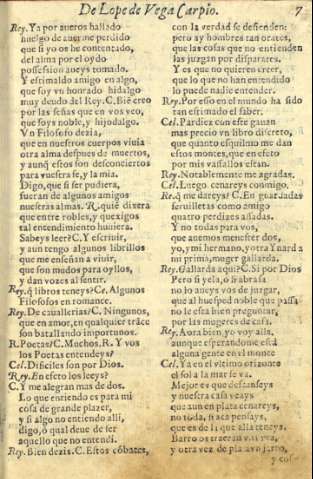 De Lope de Vega Carpio. 7
Rey. Ya por aueros hallado
huelgo de auerme perdido
que si yo os he contentado,
del alma por el oydo
possession aueys tomado.
Y estimaldo amigo en algo,
que soy vn honrado hidalgo
muy deudo del Rey. C. Biē creo
por las señas que en vos veo,
que soys noble, y hijodalgo.
Vn Filosofo dezia,
que en nuestros cuerpos viuia
otra alma despues de muertos,
y aunq̃ estos son desconciertos
para vuestra fe, y la mia.
Digo, que si ser pudiera,
fueran de algunos amigos
nuestras almas. R. quiē dixera
que entre robles, y quexigos
tal entendimiento huuiera.
Sabeys leer? C. Y escriuir,
y aun tengo algunos librillos
que me enseñan a viuir,
que son mudos para oyllos,
y dan vozes al sentir.
Rey. q̃ libros teneys? Ce. Algunos
Filosofos en romance.
Rey. De cauallerias? C. Ningunos,
que en amor, en qualquier trāce
son batallando importunos.
R. Poetas? C. Muchos. R. Y vos
los Poetas entendeys?
Cel. Dificiles son por Dios.
Rey. En esto los leeys?
C. Y me alegran mas de dos.
Lo que entiendo es para mi
cosa de grande plazer,
y si algo no entiendo alli,
digo, ô qual deue de ser
aquello que no entendi.
Rey. Bien dezis. C. Estos cōbates,
con la verdad se defienden:
pero ay hombres tan orates,
que las cosas que no entienden
las juzgan por disparates.
Y es que no quieren creer,
que lo que no han entendido
lo puede nadie entender.
Rey. Por esso en el mundo ha sido
tan estimado el saber.
Cel. Pardiez con este gauan
mas precio vn libro discreto,
que quanto esquilmo me dan
estos montes, que en efeto
por mis vassallos estan.
Rey. Notablemente me agradas.
Cel. Luego cenareys conmigo.
Re. q̃ me dareys? C. En guardadas
seruilletas como amigo
quatro perdizes assadas.
Y no todas para vos,
que auemos menester dos,
yo, y mi hermano, y otra Ynard a
mi prima, muger gallarda.
Rey. Gallarda aqui? C. Si por Dios
Pero si yela, o si abrasa
no lo aueys vos de juzgar,
que al huesped noble que passa
no le està bien preguntar,
por las mugeres de casa.
Rey. Aora bien, yo voy alla,
aunque esperandome està
alguna gente en el monte
Cel. Ya en el vltimo orizonte
el sol a la mar se va.
Mejor es que descanseys
y nuestra casa veays
que aun en plata cenareys,
no toda, si acà pensays,
que es de la que alla teneys.
Barro os traeran
y otra vez de plata vn jarro,
y col-